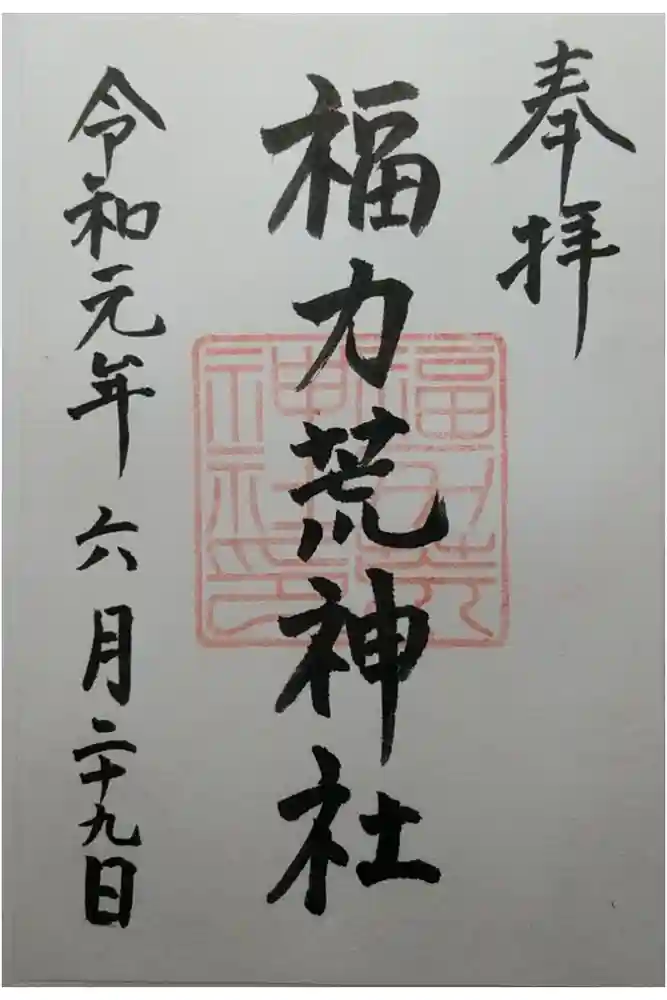 奉拝
福力荒神社
福力荒神社印
令和元年六月二十九日